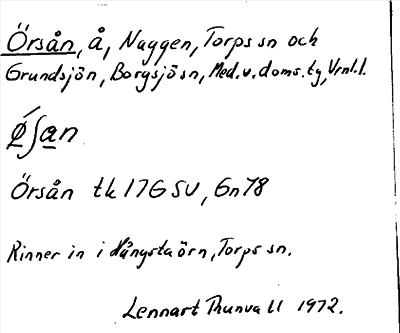 Örsån, å, Naggen, Torps sn och
Grundsjön, Borgsjö sn, Med. v. doms. tg, Vrnl. l.
ǿʃa̲n
Örsån tk 17G SV, Gn 78
Rinner in i Hångstaörn, Torps sn.
Lennart Thunvall 1972.